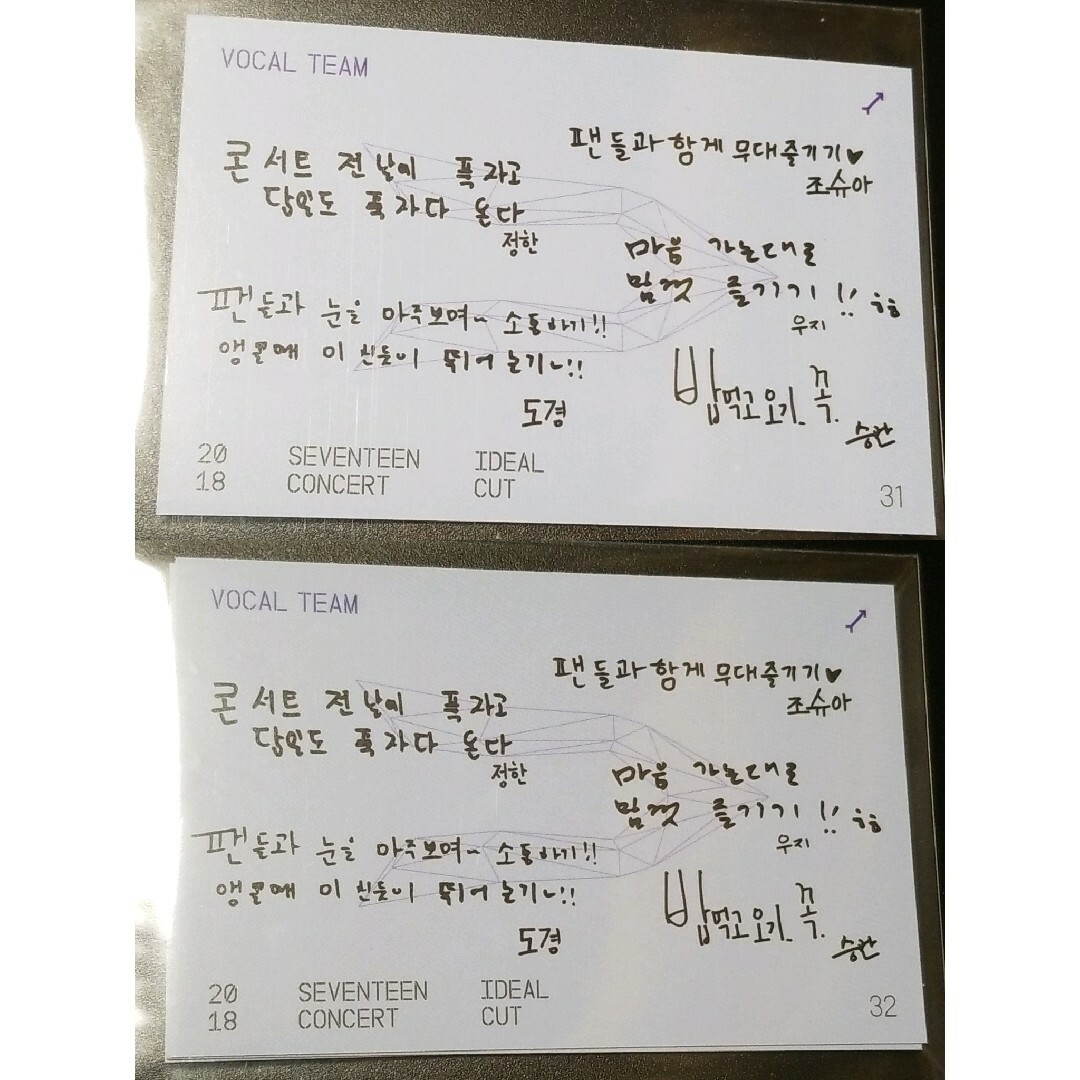 VOCAL TEAM
콘서트 전날이 푹자고
당일도 푹자다 온다
정한
팬들과 함께 무대즐기기♥
조슈아
마음 가는대로
맘껏 즐기기!! ㅎㅎ
우지
팬들과 눈을 마주보며~ 소통하기!!
앵콜때 미친듯이 뛰어놀기~!!
도겸
밥먹고오기. 꼭.
승관
20 SEVENTEEN IDEAL
18 CONCERT CUT
31
VOCAL TEAM
콘서트 전날이 푹자고
당일도 푹자다 온다
정한
팬들과 함께 무대즐기기♥
조슈아
마음 가는대로
맘껏 즐기기!! ㅎㅎ
우지
팬들과 눈을 마주보며~ 소통하기!!
앵콜때 미친듯이 뛰어놀기~!!
도겸
밥먹고오기. 꼭.
승관
20 SEVENTEEN IDEAL
18 CONCERT CUT
32